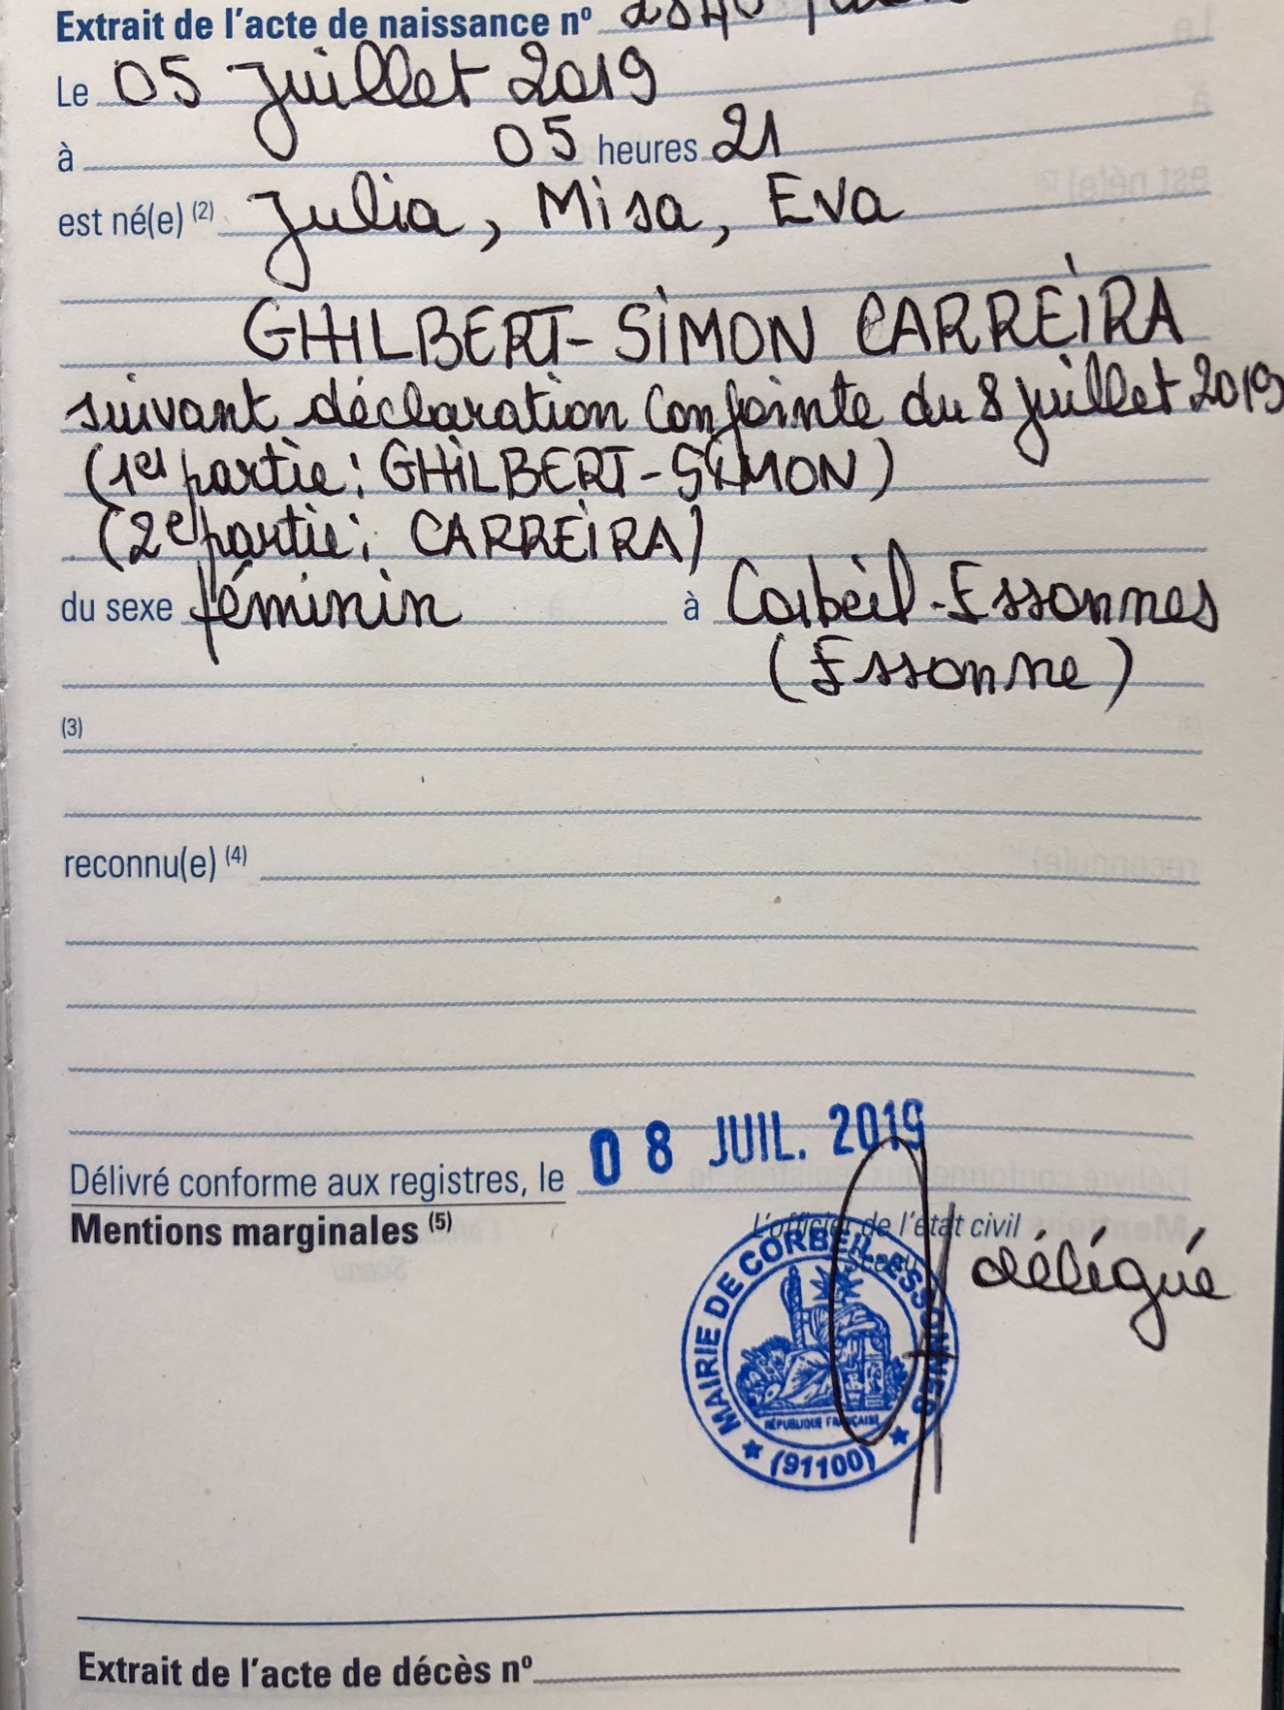 Extrait de l'acte de naissance nº
Le 05 Juillet 2019
à 05 heures 21
est né(e) (2) Julia, Misa, Eva
GHILBERT-SIMON CARREIRA
suivant déclaration conjointe du 8 juillet 2019
(1er partie : GHILBERT-SIMON)
(2e partie : CARREIRA)
du sexe féminin à Corbeil-Essonnes
(Essonne)
(3)
reconnu(e) (4)
08 JUIL. 2019
Délivré conforme aux registres, le
Mentions marginales (5)
L'officier de l'état civil
délégué
MAIRIE DE CORBEIL-ESSONNES
RÉPUBLIQUE FRANÇAISE
(91100)
Extrait de l'acte de décès nº